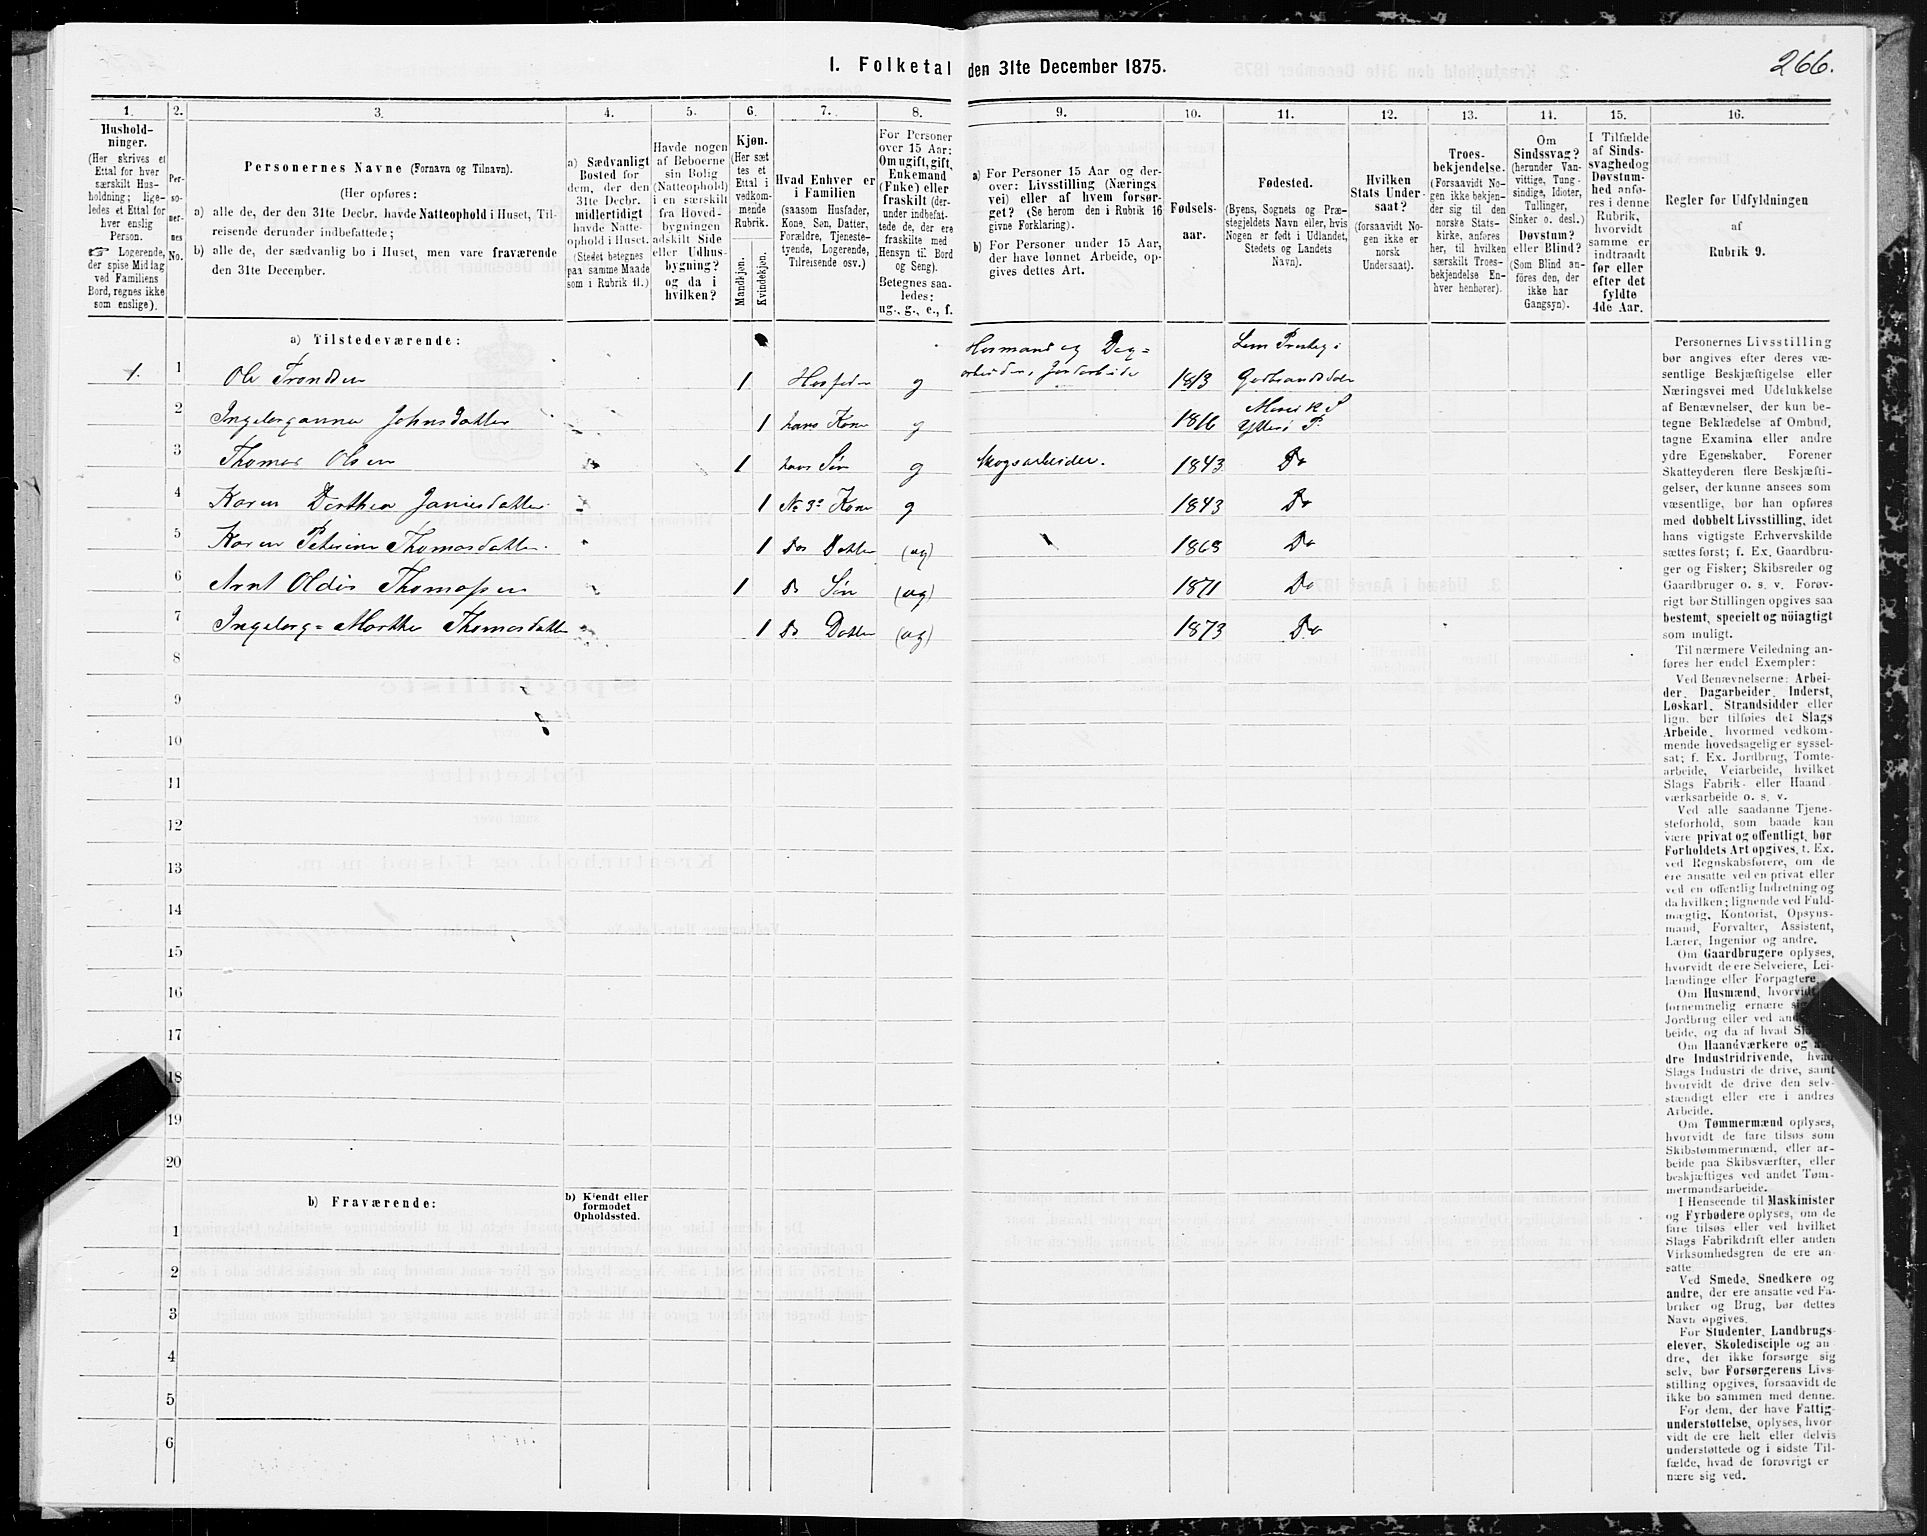 I. Folketal den 31te December 1875.
266.
1.
Hushold-
ninger.
(Her skrives et
Ettal for hver
særskilt Hus-
holdning; lige-
ledes et Ettal for
hver enslig
Person.
☞ Logerende,
der spise Middag
ved Familiens
Bord, regnes ikke
som enslige).
2.
Per-
so-
ner-
nes
No.
3.
Personernes Navne (Fornavn og Tilnavn).
(Her opføres:
a) alle de, der den 31te Decbr. havde Natteophold i Huset, Til-
reisende derunder indbefattede;
b) alle de, der sædvanlig bo i Huset, men vare fraværende
den 31te December.
4.
a) Sædvanligt
Bosted for
dem, der den
31te Decbr.
midlertidigt
havde Natte-
ophold i Huset.
(Stedet betegnes
paa samme Maade
som i Rubrik 11.)
5.
Havde nogen
af Beboerne
sin Bolig
(Natteophold)
i en særskilt
fra Hoved-
bygningen
adskilt Side
eller Udhus-
bygning?
og da i
hvilken?
6.
Kjøn.
(Her sæt
tes et
Ettal i
vedkom-
mende
Rubrik.
Mandkjøn.
Kvindekjøn.
7.
Hvad Enhver er
i Familien
(saasom Husfader,
Kone, Søn, Datter,
Forældre, Tjeneste-
tyende, Logerende,
Tilreisende osv.)
8.
For Personer
over 15 Aar:
Om ugift, gift,
Enkemand
(Enke) eller
fraskilt (der-
under indbefat-
tede de, der ere
fraskilte med
Hensyn til Bord
og Seng).
Betegnes saa-
ledes:
ug., g., e., f.
9.
a) For Personer 15 Aar og der-
over: Livsstilling (Nærings
vei) eller af hvem forsør-
get? (Se herom den i Rubrik 16
givne Forklaring).
b) For Personer under 15 Aar,
der have lønnet Arbeide, op-
gives dettes Art.
10.
Fødsels-
aar.
11.
Fødested.
(Byens, Sognets og Præ-
stegjeldets Navn eller, hvis
Nogen er født i Udlandet,
Stedets og Landets
Navn).
12.
Hvilken
Stats Under-
saat?
(forsaavidt No-
gen ikke er
norsk
Undersaat).
13.
Troes-
bekjendelse.
(Forsaavidt No-
gen ikke bekjen-
der sig til den
norske Stats-
kirke, anføres
her, til hvilken
særskilt Troes-
bekjendelse En-
hver henhører).
14.
Om
Sindssvag?
(herunder Van-
vittige, Tung-
sindige, Idioter,
Tullinger,
Sinker o. desl.)
Døvstum?
eller Blind?
(Som Blind an-
føres den, der
ikke har
Gangsyn).
15.
I Tilfælde
af Sinds-
svaghed og
Døvstum-
hed anfø-
res i denne
Rubrik,
hvorvidt
samme er
indtraadt
før eller
efter det
fyldte
4de Aar.
16.
Regler for Udfyldningen
af
Rubrik 9.
a) Tilstedeværende:
1. 1 Ole Trondsen 1 Husfader g Husmand og Dag-
arbeider, Jordarbeide 1813 Lom Prestegj i
Gudbrandsdalen
2 Ingeborganna Johnsdatter 1 hans Kone g 1816
Ytterø P.
3 Thomas Olsen 1 hans Søn g Skogsarbeider. 1843 Do
4 Karen Dorthea Janiesdatter 1 No 3s Kone g 1843 Do
5 Karen Petrine Thomasdatter. 1 Des Datter (ug) 1868 Do
6 Arnt Oldis Thomassen 1 Ds Søn (ug) 1871 Do
7 Ingeborg-Marthe Thomasdatter 1 Ds Datter (ug) 1873 Do
8
9
10
11
12
13
14
15
16
17
18
19
20
b) Fraværende:
b) Kjendt eller
formodet
Opholdssted.
1
2
3
4
5
6
Personernes Livsstilling
bør angives efter deres væ-
sentlige Beskjæftigelse eller
Næringsvei med Udelukkelse
af Benævnelser, der kun be-
tegne Beklædelse af Ombud,
tagne Examina eller andre
ydre Egenskaber. Forener
Skatteyderen flere Beskjæfti-
gelser, der kunne ansees som
væsentlige, bør han opføres
med dobbelt Livsstilling, idet
hans vigtigste Erhvervskilde
sættes først; f. Ex. Gaardbru-
ger og Fisker; Skibsreder og
Gaardbruger o. s. v. Forøv-
rigt bør Stillingen opgives saa
bestemt, specielt og nöiagtigt
som muligt.
Til nærmere Veiledning an-
føres her endel Exempler:
Ved Benævnelserne: Arbei-
der, Dagarbeider, Inderst,
Løskarl, Strandsidder eller
lign. bør tilføies det Slags
Arbeide, hvormed vedkom-
mende hovedsagelig er syssel-
sat; f. Ex. Jordbrug, Tomte-
arbeide, Veiarbeide, hvilket
Slags Fabrik- eller Haand
værksarbeide o. s. v.
Ved alle saadanne Tjene-
steforhold, som baade kan
være privat og offentligt, bør
Forholdets Art opgives, t. Ex.
ved Regnskabsførere, om de
ere ansatte ved en privat eller
ved en offentlig Indretning og
da hvilken; lignende ved Fuld-
mægtig, Kontorist, Opsyns-
mand, Forvalter, Assistent,
Lærer, Ingeniør og andre.
Om Gaardbrugere oplyses,
hvorvidt de ere Selveiere, Lei-
lændinge eller Forpagtere.
Om Husmænd, hvorvidt
fornemmelig ernære
Jordbrug eller ved
beide, og da af hvad
Om Haandværkere og
dre Industridrivende,
Slags Industri de drive, samt
hvorvidt de drive den selv-
stændigt eller ere i andres
Arbeide.
Om Tømmermænd oplyses,
hvorvidt de fare tilsøs som
Skibstømmermænd, eller ar-
beide paa Skibsværfter, eller
beskjæftiges ved andet Tøm-
mermandsarbeide.
I Henseende til Maskinister
og Fyrbødere oplyses, om de
fare tilsøs eller ved hvilket
Slags Fabrikdrift eller anden
Virksomhedsgren de ere an-
satte
Ved Smede, Snedkere og
andre, der ere ansatte ved Fa-
briker og Brug, bør dettes
Navn opgives.
For Studenter, Landbrugs-
elever, Skoledisciple og an-
dre, der ikke forsørge sig
selv, bør Forsørgerens Livs-
stilling opgives, forsaavidt de
ikke bo sammen med denne.
For dem, der have Fattig-
understøttelse, oplyses, hvor-
vidt de ere helt eller delvis
understøttede og i sidste Til-
fælde, hvad de forøvrigt er
nære sig ved.